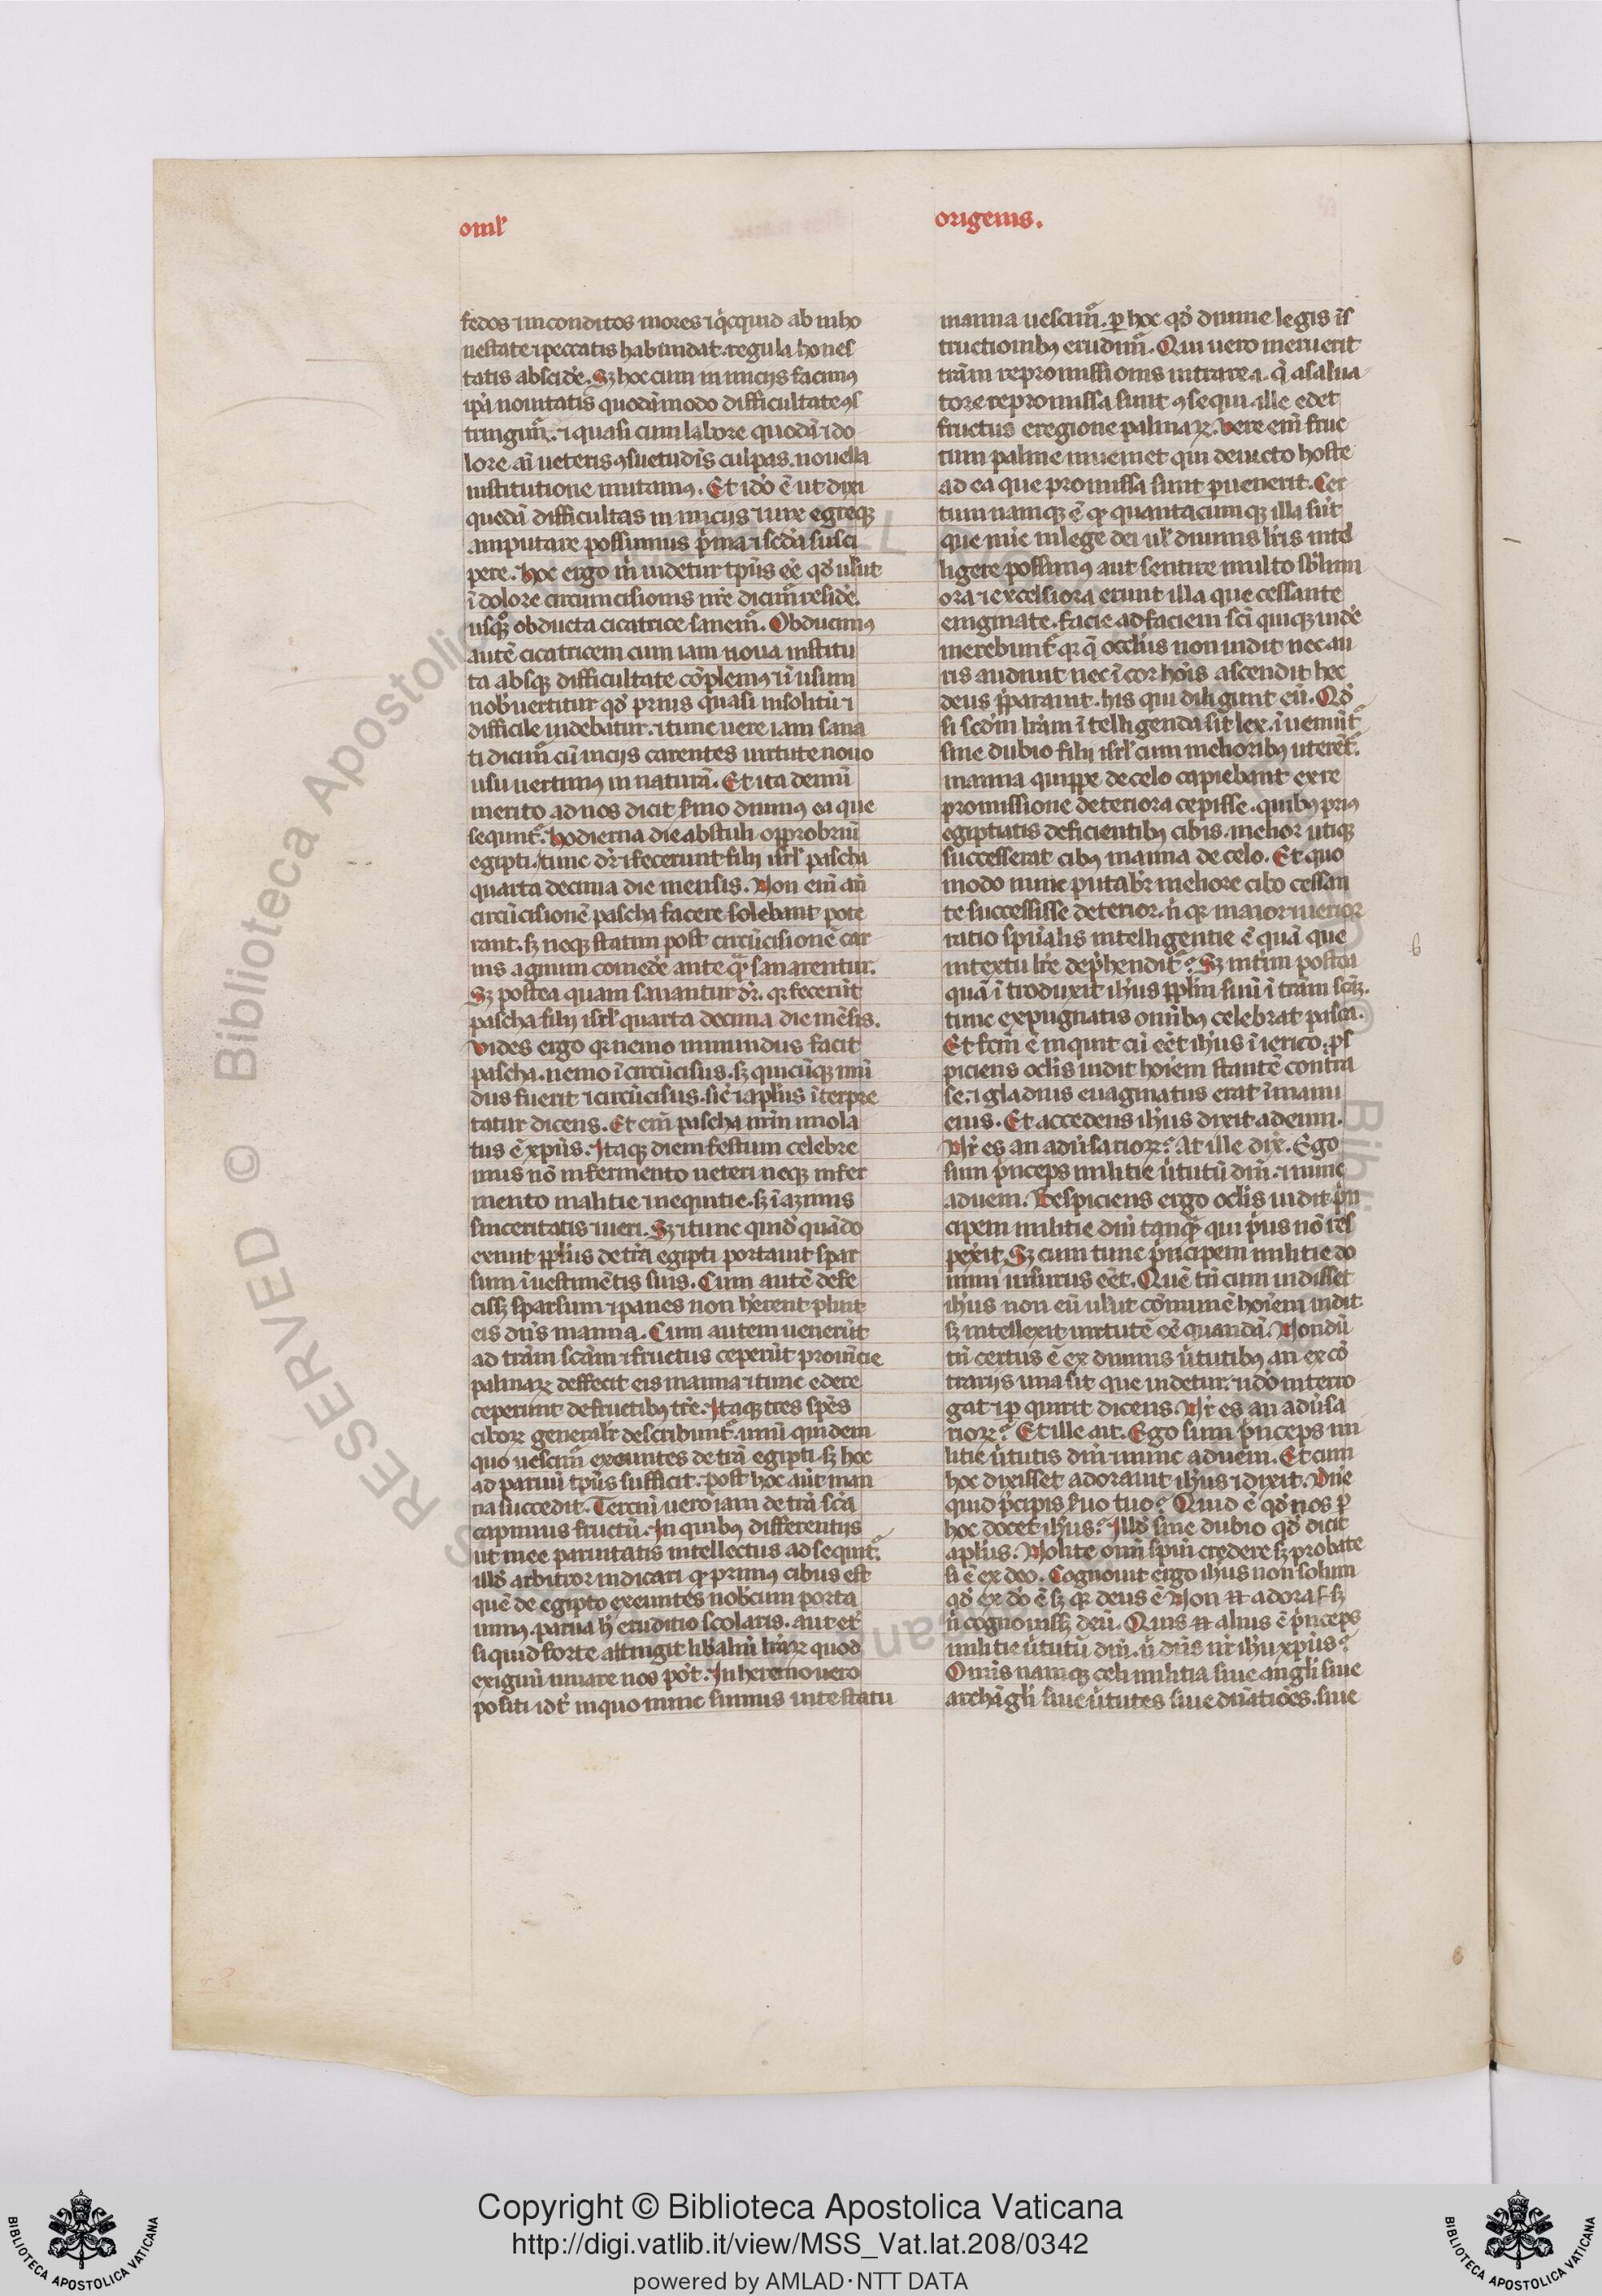 omł
origenis.
fedos ⁊ inconditos mores ⁊ q̇cquid ab inho
nestate ⁊ peccatis habundat. regula hones
tatis abscidẽ. Sꝫ hoc cum in iniciis facimꝰ
ip̃a nouitatis quodãmodo difficultate ꝯs
tringim̃. ⁊ quasi cum labore quodã ⁊ do
lore aĩ ueteris ꝯsuetudĩs culpas. nouella
institutione mutamꝰ. Et iđo ẽ ut dixi
quedã difficultas in iniciis ⁊ uix egreqꝫ
amputare possumus p̃ma ⁊ sc̃da susci
pere. Hoc ergo m̃ uidetur tp̃us eẽ qđ uł ut
ĩ dolore circumcisionis nr̃e dicim̃ residẽ.
usqꝫ quo obducta cicatrice sanem̃. Obducimꝰ
autẽ cicatricem cum iam noua institu
ta absqꝫ difficultate cõplemꝰ ⁊ ĩ usum
nob̃ uertitur qđ prius quasi insolitũ ⁊
difficile uidebatur. ⁊ tunc uere iam sana
ti dicim̃ cũ uiciis carentes uirtute nouo
usu uertimꝰ in naturã. Et ita demũ
merito ad nos dicit s̃mo diuinꝰ ea que
sequnt̃. Hodierna die abstuli opprobriũ
egipti. tunc dr̃ ⁊ fecerunt filij isrł pascha
quarta decima die mensis. Non em̃ añ
circũcisionẽ pascha facere solebant pote
rant. sꝫ neqꝫ statim post circũcisionẽ car
nis agnum comedẽ ante qꝫ sanarentur.
Sꝫ postea quam sanantur dr̃. qꝛ fecerũt
pascha filij isrł quarta decima die mẽsis.
Vides ergo qꝛ nemo inmundus facit
pascha. nemo ĩ circũcisus. sꝫ quicũqꝫ mũ
dus fuerit ⁊ circũcisus. sic̃ ⁊ apłus ĩterpre
tatur dicens. Et em̃ pascha nr̃m imola
tus ẽ xpũs. Itaqꝫ diem festum celebre
mus nõ in fermento ueteri neqꝫ in fer
mento malitie ⁊ nequitie. sꝫ ĩ azimis
sinceritatis ⁊ ueri. Sꝫ ⁊ tunc quiđ quãdo
exiuit ppłus de tr̃a egipti portauit spar
sum ĩ uestimẽtis suis. Cum autẽ defe
cissꝫ sparsum ⁊ panes non h̃erent pluit
eis dñs manna. Cum autem uenerũt
ad tr̃am sc̃am ⁊ fructus ceperũt prouĩcie
palmaꝝ deffecit eis manna ⁊ tunc edere
ceperunt de fructibꝰ tr̃e. Itaqꝫ tres sp̃es
ciboꝝ generalr̃ describunt̃. unũ quidem
quo uescim̃ exeuntes de tr̃a egipti. sꝫ hoc
ad paruũ tp̃us sufficit. post hoc aũt man
na succedit. Tercium uero iam de tr̃a sc̃a
capimus fructũ. In quibꝰ differentiis
ut mee paruitatis intellectus adsequit̃.
illđ arbitror indicari qꝫ primus cibus est
quẽ de egipto exeuntes nob̃cum porta
uimꝰ. parua h̃ eruditio scolaris. aut et̃
si quid forte attingit lib̃aliũ lr̃aꝝ quod
exiguũ iuuare nos pot̃. In heremo uero
positi idt̃ in quo nunc sumus inte statu
manna uescim̃. ꝑ hoc qđ diuine legis ĩs
tructionibꝰ erudim̃. Qui uero meruerit
tr̃am repromissionis intrare. i. q̃ a salua
tore repromissa sunt ꝯsequi. ille edet
fructus e regione palmaꝝ. Vere em̃ fruc
tum palme inueniet qui deuicto hoste
ad ea que promissa sunt ꝑuenerit. Cer
tum namqꝫ ẽ qꝫ quantacumqꝫ illa sũt
que nũc in lege dei uł diuinis lr̃is intel
ligere possumꝰ aut sentire multo sb̃lim
ora ⁊ excelsiora erunt illa que cessante
enigmate. facie ad faciem sc̃i quiqꝫ uidẽ
merebunt̃ qꝛ q̃ occłus non uidit nec au
ris audiuit nec ĩ cor hõis ascendit hec
deus p̃parauit. his qui diligunt eũ. Qđ
si sc̃dm lr̃am ĩ telligenda sit lex. ĩ ueniũt̃
sine dubio filij isrł cum melioribꝰ uterẽt̃.
manna quippe de celo capiebant ex re
promissione deteriora cepisse. quibꝰ priꝰ
egiptiatis deficientibꝰ cibis. melior utiqꝫ
successerat cibꝰ manna de celo. Et quo
modo nunc putabr̃ meliore cibo cessan
te successisse deterior. ñ qꝛ maior ⁊ uerior
ratio spũalis intelligentie ẽ quã que
in textu lr̃e dep̃hendit̃? Sꝫ int̃im postea
quã ĩ troduxit ih̃us ppłm suũ ĩ tr̃am sc̃aꝫ.
tunc expugnatis om̃ibꝰ celebrat pasca.
Et fcm̃ ẽ inquit cũ eẽt ih̃us ĩ ierico. ꝑs
piciens ocłis uidit hoĩem stantẽ contra
se. ⁊ gladius euaginatus erat ĩ manu
eius. Et accedens ih̃us dixit ad eum.
Nr̃ es an adũsarioꝝ? At ille dix̃. Ego
sum p̃nceps militie ũtutũ dñi. ⁊ nunc
adueni. Respiciens ergo ocłis uidit p̃n
cipem militie dñi tanqꝫ qui p̃us nõ ĩ res
pexit. Sꝫ cum tunc p̃ncipem militie do
mini uisurus eẽt. Quẽ tñ cum uidisset
ih̃us non eũ uł ut cõmunẽ hoĩem uidit
sꝫ intellexit uirtutẽ eẽ quandã. Nondũ
tñ certus ẽ ex diuinis ũtutibus an ex cõ
trariis una sit que uidetur. ⁊ iđo interro
gat ⁊ ꝑquirit dicens. Nr̃ es an adũsa
rioꝝ? Et ille ait. Ego sum p̃nceps mi
litie ũtutis dñi. nunc adueni. Et cum
hoc dixisset adorauit ih̃us ⁊ dixit. Dñe
quid p̃cipis s̃uo tuo? Quid ẽ qđ nos ꝑ
hoc docet ih̃us? Illđ sine dubio qđ dicit
apłus. Nolite om̃i spũi credere sꝫ probate
si ẽ ex deo. Cognouit ergo ih̃us non solum
qđ ex do ẽ sꝫ qꝛ deus ẽ. Non
ñ cognouissꝫ deũ. Quis alius ẽ p̃nceps
militie ũtutũ dñi. ñ dñs nr̃ ih̃u xpũs?
Om̃is namqꝫ celi militia siue angłi siue
archãgłi siue ũtutes siue dñatiões. siue
6
Copyright © Biblioteca Apostolica Vaticana
http://digi.vatlib.it/view/MSS_Vat.lat.208/0342
powered by AMLAD·NTT DATA
BIBLIOTECA APOSTOLICA VATICANA
BIBLIOTECA APOSTOLICA VATICANA